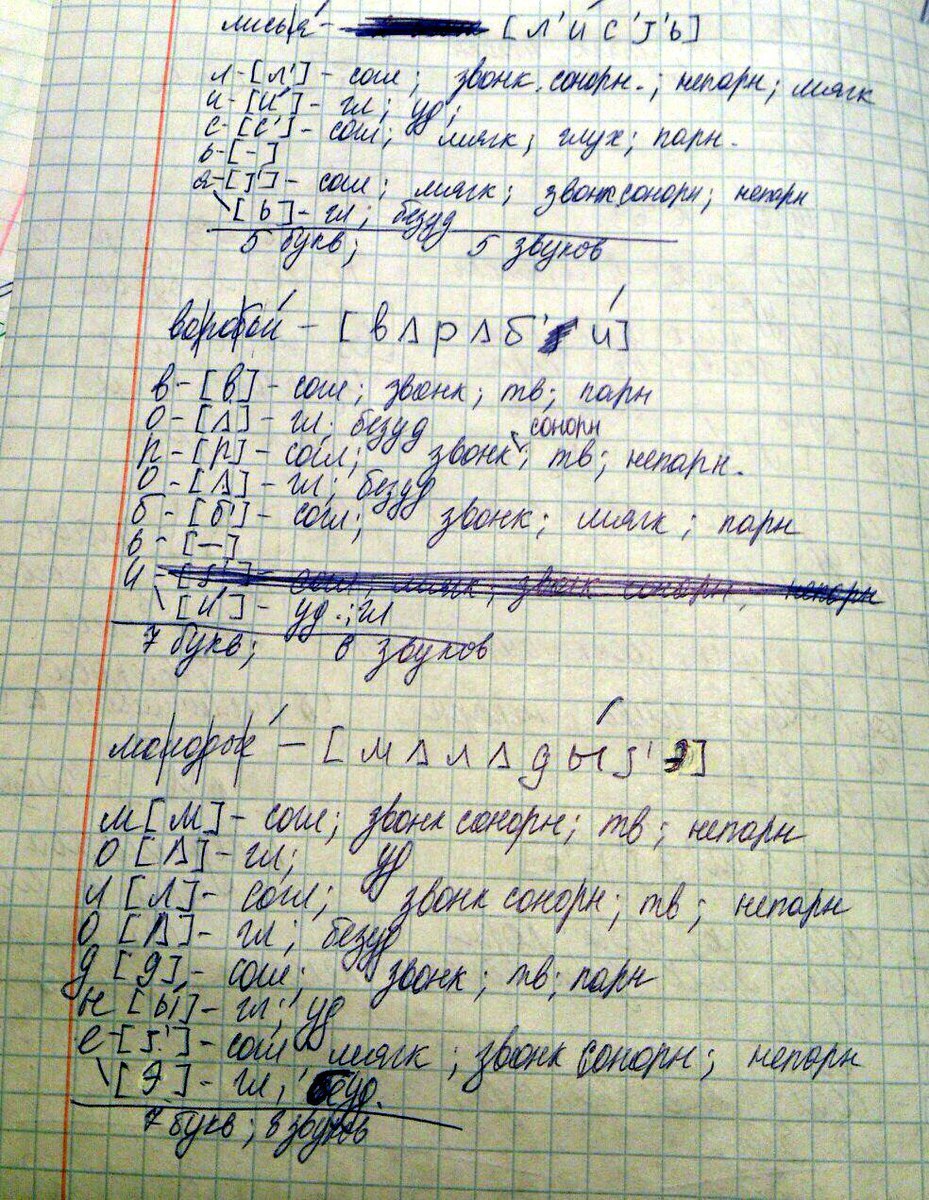 лисья - [л'и́с'j'ь]
л-[л'] - согл; звонк. сонорн.; непарн; мягк
и-[и́] - гл; уд;
с-[с'] - согл; мягк; глух; парн.
ь-[-]
я-[j'] - согл; мягк; звонк сонорн; непарн
\[ь] - гл; безуд
5 букв; 5 звуков
воробьи́ - [вΛрΛб'и́]
в-[в] - согл; звонк; тв; парн
о-[Λ] - гл; безуд
сонорн
р-[р] - согл; звонк; тв; непарн.
о-[Λ] - гл; безуд
б-[б'] - согл; звонк; мягк; парн
ь-[—]
и-
\[и́] - уд.; гл
7 букв; 6 звуков
молоды́е - [мΛлΛды́j'э]
м [м] - согл; звонк сонорн; тв; непарн
о [Λ] - гл; уд
л [л] - согл; звонк сонорн; тв; непарн
о [Λ] - гл; безуд
д [д] - согл; звонк; тв; парн
ы [ы́] - гл; уд
е-[j'] - согл мягк; звонк сонорн; непарн
\[э] - гл; безуд.
7 букв; 8 звуков